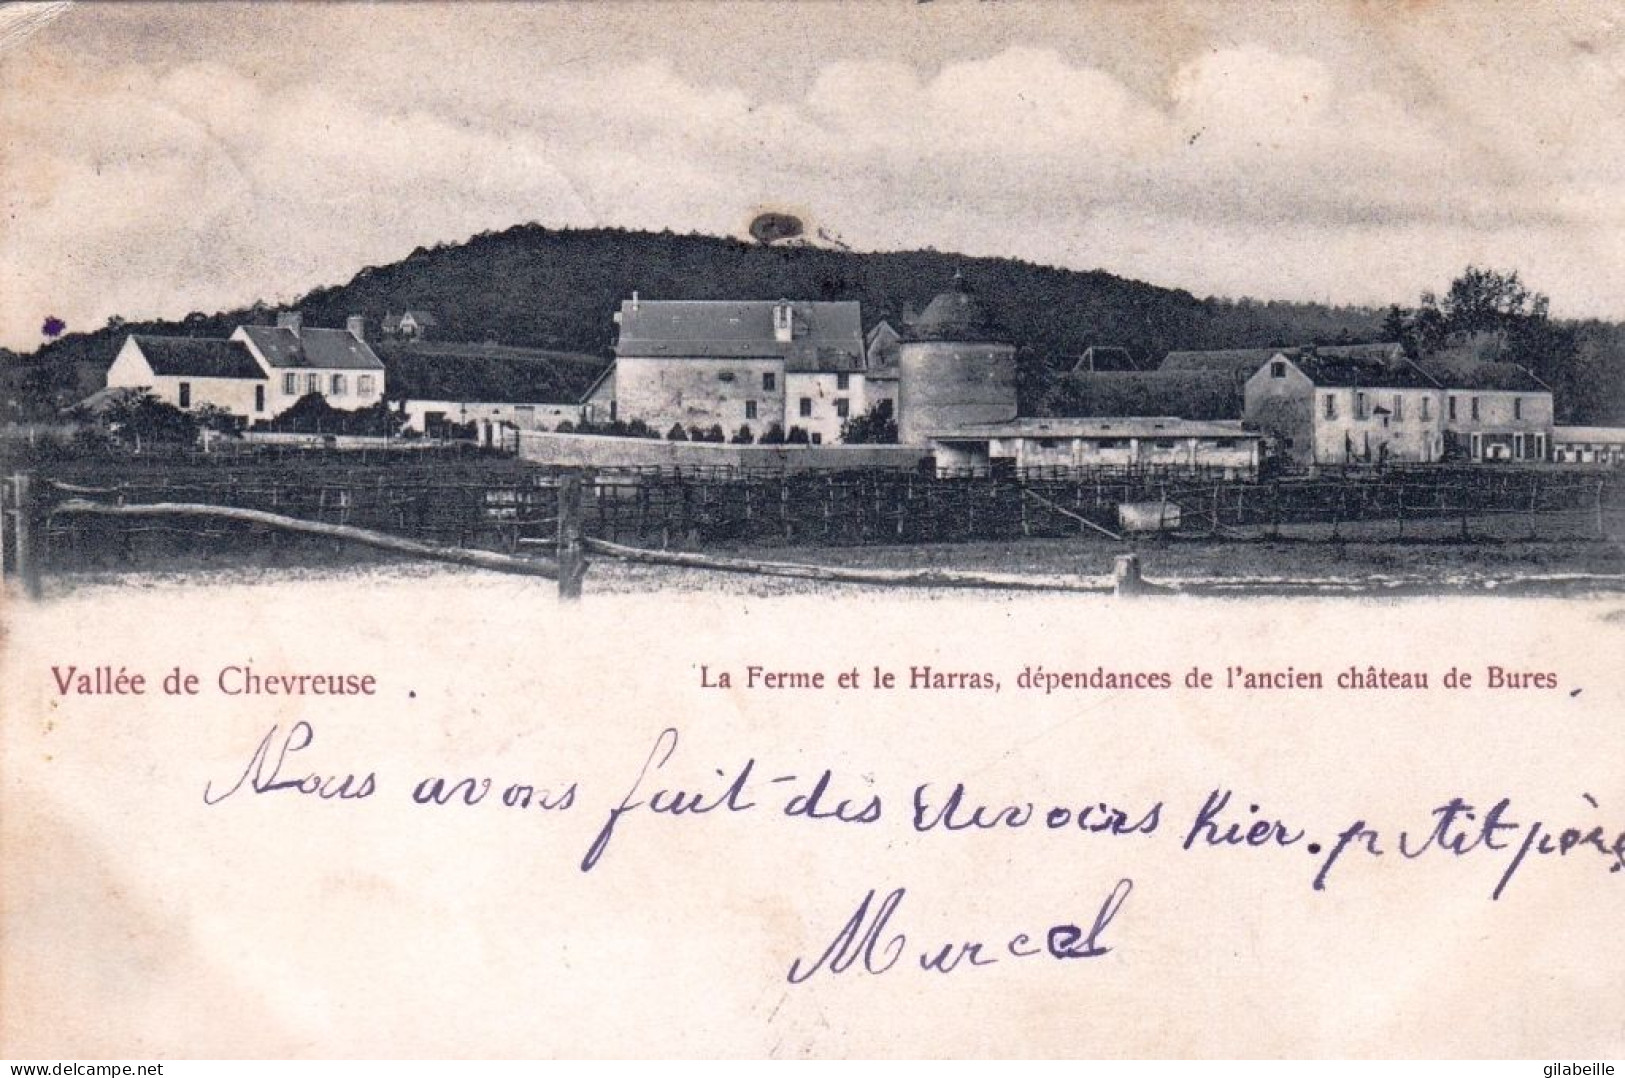 Vallée de Chevreuse .
La Ferme et le Harras, dépendances de l'ancien château de Bures .
Nous avons fait des devoirs hier. petit père
Marcel
delcampe.net
gilabeille